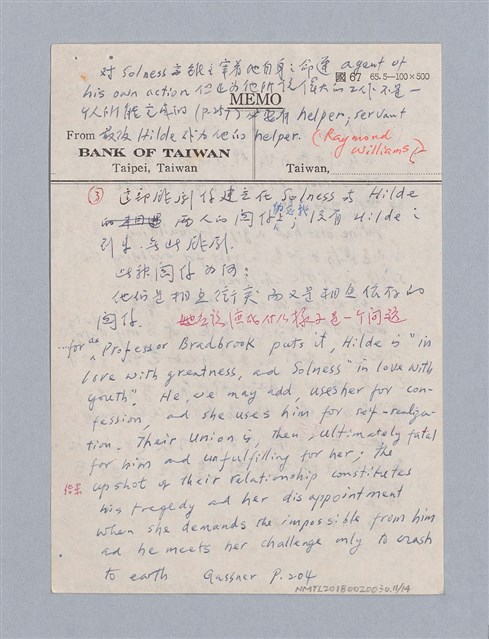 對 Solness 言能主宰着他自身之命運 agent of
國 67 65.5—100×500
his own action 但是為他所說偉大的工作不是一
個人所能完成的 (P.257) 必要有 helper, servant
MEMO
From 最後 Hilde 作為他的 helper. (Raymond Williams)
BANK OF TAIWAN
Taipei, Taiwan Taiwan,
③ 這部戲劇係建立在 Solness 與 Hilde
兩人的關係上; 沒有 Hilde 之
到來, 無此戲劇.
此種關係為何:
他們是相互衝突而又是相互依存的
關係. 她應該演成什么樣子是一个问题
...for as Professor Bradbrook puts it, Hilde is "in
love with greatness, and Solness "in love with
youth". He, we may add, uses her for con-
fession, and she uses him for self-realiza-
tion. Their union is, then, ultimately fatal
for him and unfulfilling for her; the
結果 upshot of their relationship constitutes
his tragedy and her disappointment
when she demands the impossible from him
ad he meets her challenge only to crash
to earth Gassner P.204
NMTL20180020030.11/14